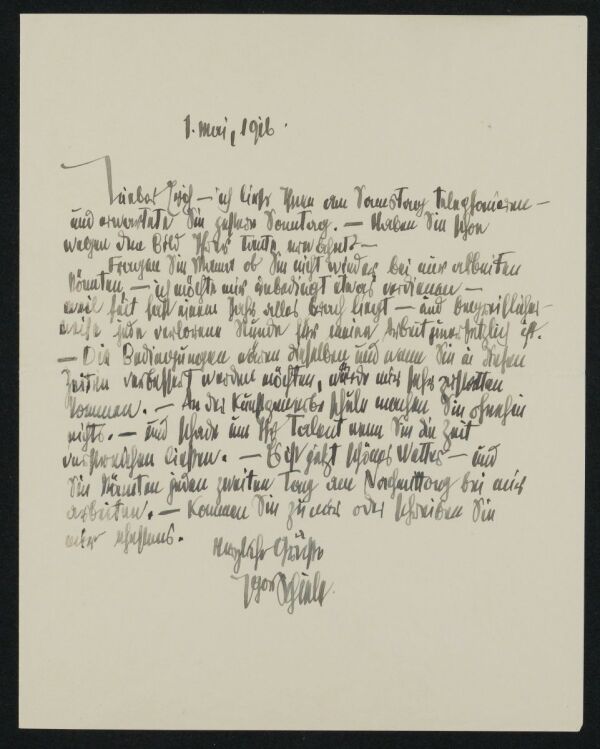 1. Mai, 1916.
Lieber – ich ließ Ihnen am Samstag telephonieren –
und erwartete Sie gestern Sonntag. – Haben Sie schon
wegen dem Bild Ihrer Tante
Fragen Sie Mama ob Sie nicht wieder bei mir arbeiten
könnten, – ich möchte mir unbedingt etwas verdienen –
weil seit fast einem Jahr alles brach liegt – und begreiflicher-
weise jede verlorene Stunde für meine Arbeit ist.
– Die Bedingungen wären dieselben und wenn Sie in diesen
Zeiten verbessert werden möchten, würde mir sehr
kommen. – An der Kunstgewerbe Schule machen Sie ohnehin
nichts. – und schade um Ihr Talent wenn Sie die Zeit
verstreichen ließen. – Es ist jetzt schönes Wetter – und
Sie könnten jeden zweiten Tag am Nachmittag bei mir
arbeiten. – Kommen Sie zu mir oder schreiben Sie
mir ehestens.
Herzliche Grüße
Egon Schiele.